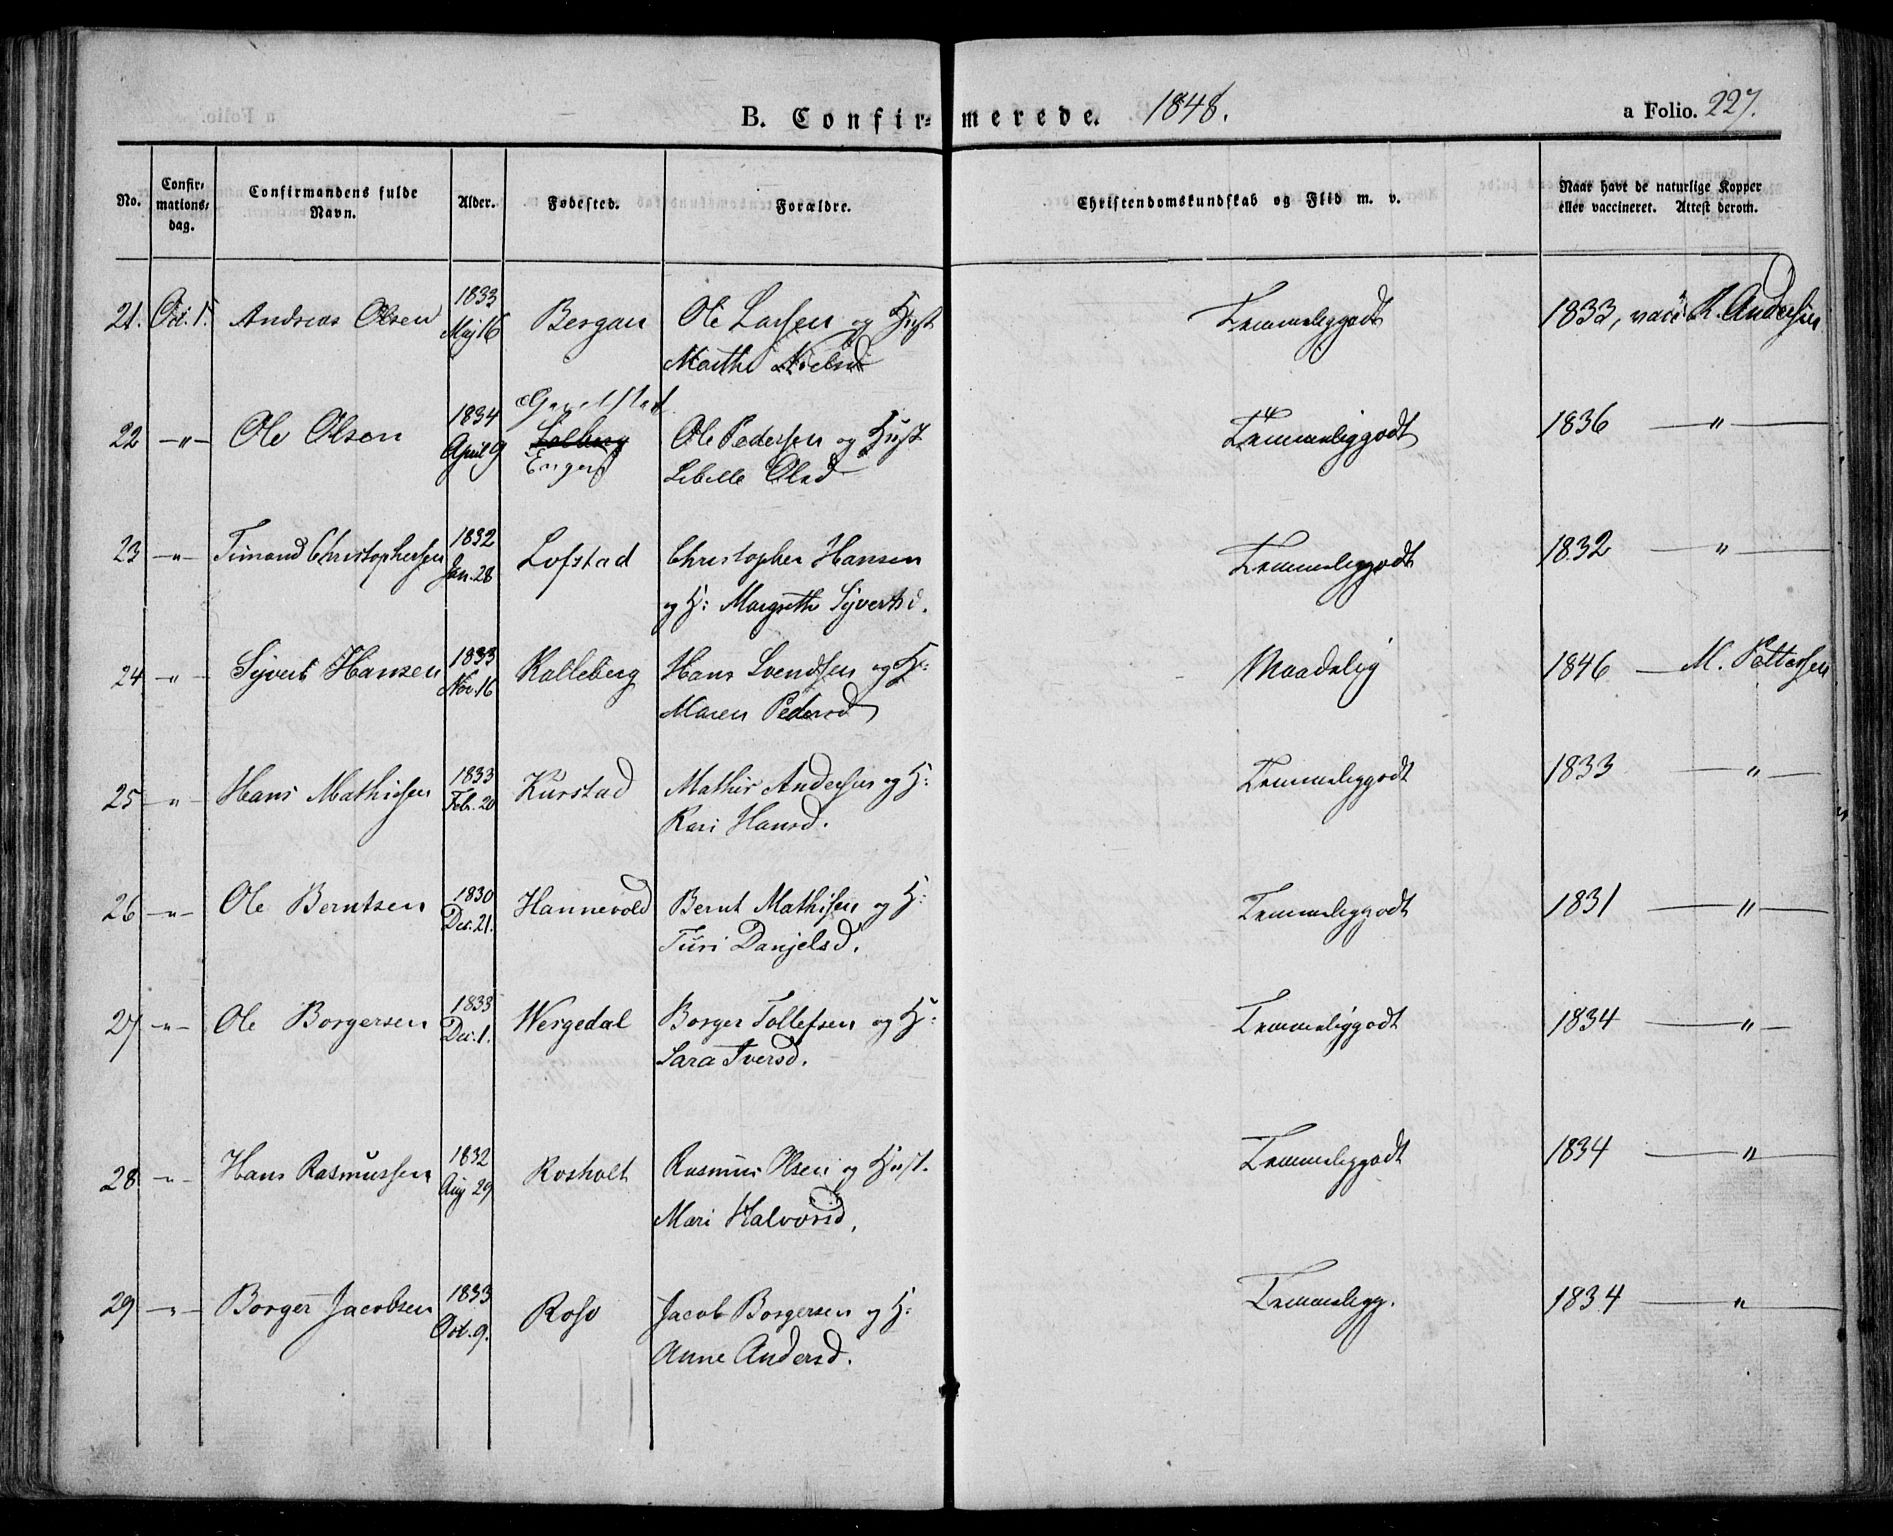 B. Confir- merede. 1848. a Folio. 227.
No. Confir-mations-dag. Confirmandens fulde Navn. Alder. Fødested. Forældre. Christendomskundskab og Flid m. v. Naar havt de naturlige Kopper eller vaccineret. Attest derom.
21. Oct. 1. Andreas Olsen 1833 Maj 16 Bergan Ole Larsen og Hust Temmeliggodt 1833, vacc: K. Andersen
Marthe Nielsd
22 —"— Ole Olsen 1834 April 9 Solberg Enger Ole Pedersen og Hust Temmeliggodt 1836 — " —
Sibille Olsd
23 —"— Simond Christophersen 1832 Jan. 28 Lofstad Christopher Hansen Temmeliggodt 1832 — " —
og H: Margrethe Syvertsd.
24 —"— Syvert Hansen 1833 Nov. 16 Kalleberg Hans Svendsen og H: Maadelig 1846 — M. Pettersen
Maren Pedersd
25 —"— Hans Mathisen 1833 Feb. 20 Kurstad Mathis Andersen og H: Temmeliggodt 1833 — " —
Kari Hansd.
26 —"— Ole Berntsen 1830 Dec. 21. Hannevold Bernt Mathisen og H: Temmeliggodt 1831 — " —
Turi Danjelsd.
27 —"— Ole Borgersen 1833 Dec. 1. Wergedal Borger Tollefsen og H: Temmeliggodt 1834 — " —
Sara Iversd.
28 —"— Hans Rasmussen 1832 Aug 29 Rosholt Rasmus Olsen og Hust. Temmeliggodt 1834 — " —
Mari Halvorsd.
29 —"— Borger Jacobsen 1833 Oct. 9. Roso Jacob Borgersen og H: Temmeligg. 1834 — " —
Anne Andersd.